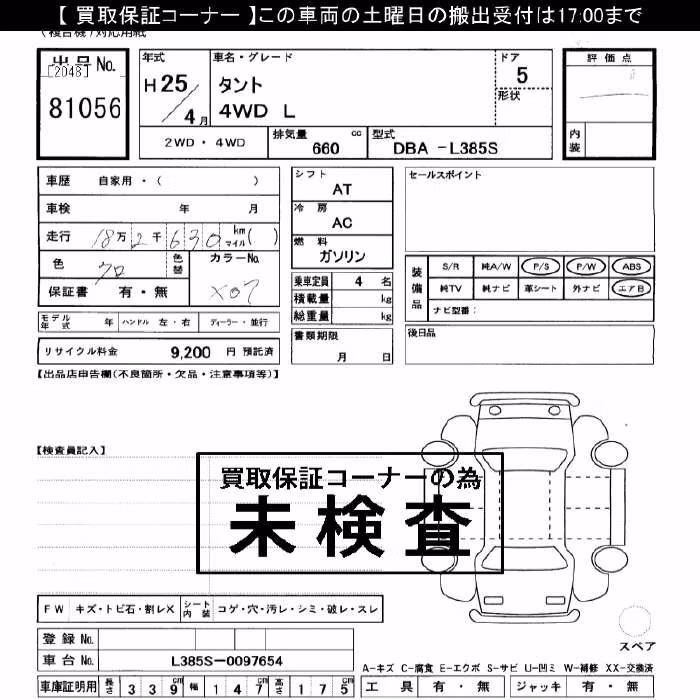 【 買取保証コーナー 】この車両の土曜日の搬出受付は17:00まで
(複合機)対応用紙
出品 No.
[2048]
81056
年式
H 25 / 4 月
車名・グレード
タント
4WD L
ドア
5
形状
評 価 点
内装
2WD・4WD
排気量 cc
660
型式
DBA -L385S
車歴 自家用・( )
車検 年 月
走行 18万2千630 km マイル( )
色 クロ
色替
カラーNo.
X07
保証書 有・無
モデル年式 年 ハンドル 左・右 ディーラー・並行
リサイクル料金 9,200 円 預託済
シフト
AT
冷 房
AC
燃 料
ガソリン
乗車定員 4 名
積載量 kg
総重量 kg
書類期限
月 日
セールスポイント
装備品
S/R 純A/W P/S P/W ABS
純TV 純ナビ 革シート 外ナビ エアB
ナビ型番:
後日品
【出品店申告欄(不良箇所・欠品・注意事項等)】
【検査員記入】
買取保証コーナーの為
未 検 査
FW キズ・トビ石・割レX シート内装 コゲ・穴・汚レ・シミ・破レ・スレ
登録 No.
車台 No. L385S-0097654
車庫証明用 長さ 339 cm 幅 147 cm 高さ 175 cm
スペア
A-キズ C-腐食 E-エクボ S-サビ U-凹ミ W-補修 XX-交換済
工 具 有・無 ジャッキ 有・無